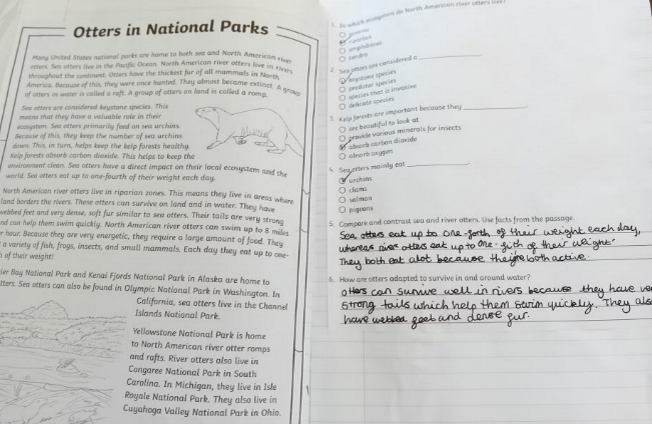 Otters in National Parks
Many United States national parks are home to both sea and North American river
otters. Sea otters live in the Pacific Ocean. North American river otters live in rivers
throughout the continent. Otters have the thickest fur of all mammals in North
America. Because of this, they were once hunted. They almost became extinct. A group
of otters in water is called a raft. A group of otters on land is called a romp.
Sea otters are considered keystone species. This
means that they have a valuable role in their
ecosystem. Sea otters primarily feed on sea urchins.
Because of this, they keep the number of sea urchins
down. This, in turn, helps keep the kelp forests healthy.
Kelp forests absorb carbon dioxide. This helps to keep the
environment clean. Sea otters have a direct impact on their local ecosystem and the
world. Sea otters eat up to one-fourth of their weight each day.
North American river otters live in riparian zones. This means they live in areas where
land borders the rivers. These otters can survive on land and in water. They have
webbed feet and very dense, soft fur similar to sea otters. Their tails are very strong
and can help them swim quickly. North American river otters can swim up to 8 miles
hour. Because they are very energetic, they require a large amount of food. They
a variety of fish, frogs, insects, and small mammals. Each day they eat up to one-
of their weight!
Bay National Park and Kenai Fjords National Park in Alaska are home to
otters. Sea otters can also be found in Olympic National Park in Washington. In
California, sea otters live in the Channel
Islands National Park.
Yellowstone National Park is home
to North American river otter romps
and rafts. River otters also live in
Congaree National Park in South
Carolina. In Michigan, they live in Isle
Royale National Park. They also live in
Cuyahoga Valley National Park in Ohio.
1. In which ecosystem do North American river otters live?
riparian
tundra
2. Sea otters are considered a
keystone species
predator species
species that is invasive
delicate species
3. Kelp forests are important because they
are beautiful to look at
provide various minerals for insects
absorb carbon dioxide
absorb oxygen
4. Sea otters mainly eat
urchins
clams
salmon
pigeons
5. Compare and contrast sea and river otters. Use facts from the passage.
Sea otters eat up to one-forth of their weight each day,
whereas river otters eat up to one-fith of their weight.
They both eat alot because they're both active.
6. How are otters adapted to survive in and around water?
otters can survive well in rivers because they have
strong tails which help them swim quickly. They
have webbed feet and dense fur.